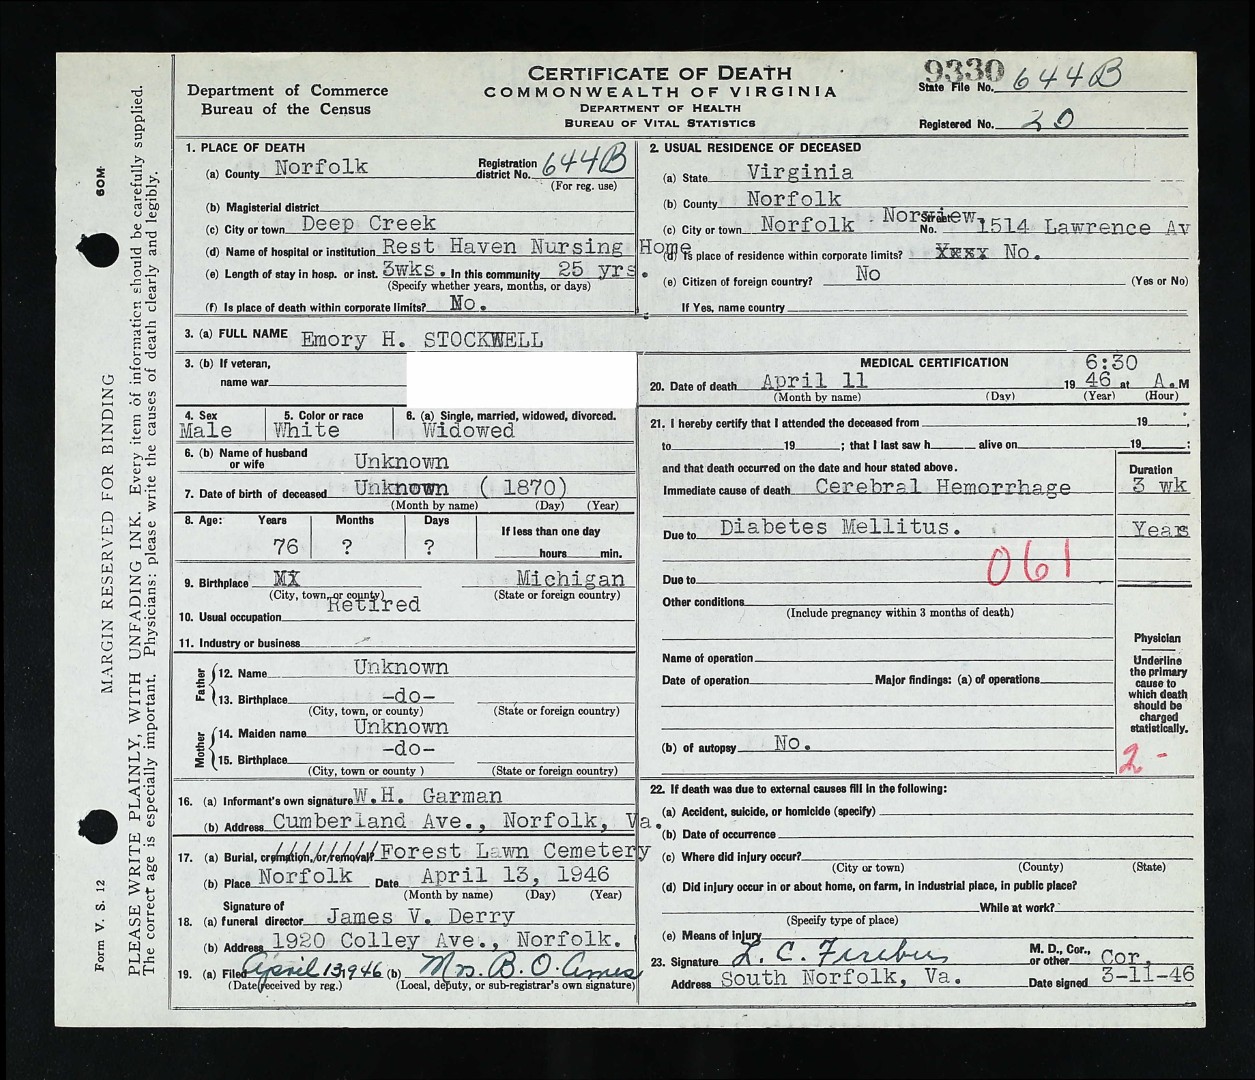 CERTIFICATE OF DEATH
COMMONWEALTH OF VIRGINIA
DEPARTMENT OF HEALTH
BUREAU OF VITAL STATISTICS
Department of Commerce
Bureau of the Census
9330
State File No. 644B
Registered No. 20
1. PLACE OF DEATH
(a) County Norfolk Registration district No. 644B
(For reg. use)
(b) Magisterial district
(c) City or town Deep Creek
(d) Name of hospital or institution Rest Haven Nursing Home
(e) Length of stay in hosp. or inst. 3wks. In this community 25 yrs.
(Specify whether years, months, or days)
(f) Is place of death within corporate limits? No.
2. USUAL RESIDENCE OF DECEASED
(a) State Virginia
(b) County Norfolk
(c) City or town Norfolk Norview, Street No. 1514 Lawrence Av
(d) Is place of residence within corporate limits? Xxxx No.
(e) Citizen of foreign country? No (Yes or No)
If Yes, name country
3. (a) FULL NAME Emory H. STOCKWELL
3. (b) If veteran,
name war
4. Sex Male
5. Color or race White
6. (a) Single, married, widowed, divorced. Widowed
6. (b) Name of husband or wife Unknown
7. Date of birth of deceased Unknown (1870)
(Month by name) (Day) (Year)
8. Age: Years Months Days If less than one day
76 ? ? hours min.
9. Birthplace MX Michigan
(City, town, or county) (State or foreign country)
10. Usual occupation Retired
11. Industry or business
Father
12. Name Unknown
13. Birthplace -do-
(City, town, or county) (State or foreign country)
Mother
14. Maiden name Unknown
15. Birthplace -do-
(City, town or county ) (State or foreign country)
16. (a) Informant's own signature W.H. Garman
(b) Address Cumberland Ave., Norfolk, Va.
17. (a) Burial, cremation, or removal? Forest Lawn Cemetery
(b) Place Norfolk Date April 13, 1946
(Month by name) (Day) (Year)
Signature of
18. (a) funeral director James V. Derry
(b) Address 1920 Colley Ave., Norfolk.
19. (a) Filed April 13 1946 (b) Mrs. B. O. Ames
(Date received by reg.) (Local, deputy, or sub-registrar's own signature)
MEDICAL CERTIFICATION
20. Date of death April 11 1946 at 6:30 A.M
(Month by name) (Day) (Year) (Hour)
21. I hereby certify that I attended the deceased from 19 ,
to 19 ; that I last saw h alive on 19 ;
and that death occurred on the date and hour stated above.
Duration
Immediate cause of death Cerebral Hemorrhage 3 wk
Due to Diabetes Mellitus. Years
061
Due to
Other conditions
(Include pregnancy within 3 months of death)
Name of operation
Date of operation Major findings: (a) of operations
(b) of autopsy No.
Physician
Underline
the primary
cause to
which death
should be
charged
statistically.
2 -
22. If death was due to external causes fill in the following:
(a) Accident, suicide, or homicide (specify)
(b) Date of occurrence
(c) Where did injury occur?
(City or town) (County) (State)
(d) Did injury occur in or about home, on farm, in industrial place, in public place?
While at work?
(Specify type of place)
(e) Means of injury
23. Signature L. C. M. D., Cor., or other Cor.
Address South Norfolk, Va. Date signed 3-11-46
Form V. S. 12
60M
MARGIN RESERVED FOR BINDING
PLEASE WRITE PLAINLY, WITH UNFADING INK. Every item of information should be carefully supplied.
The correct age is especially important. Physicians: please write the causes of death clearly and legibly.